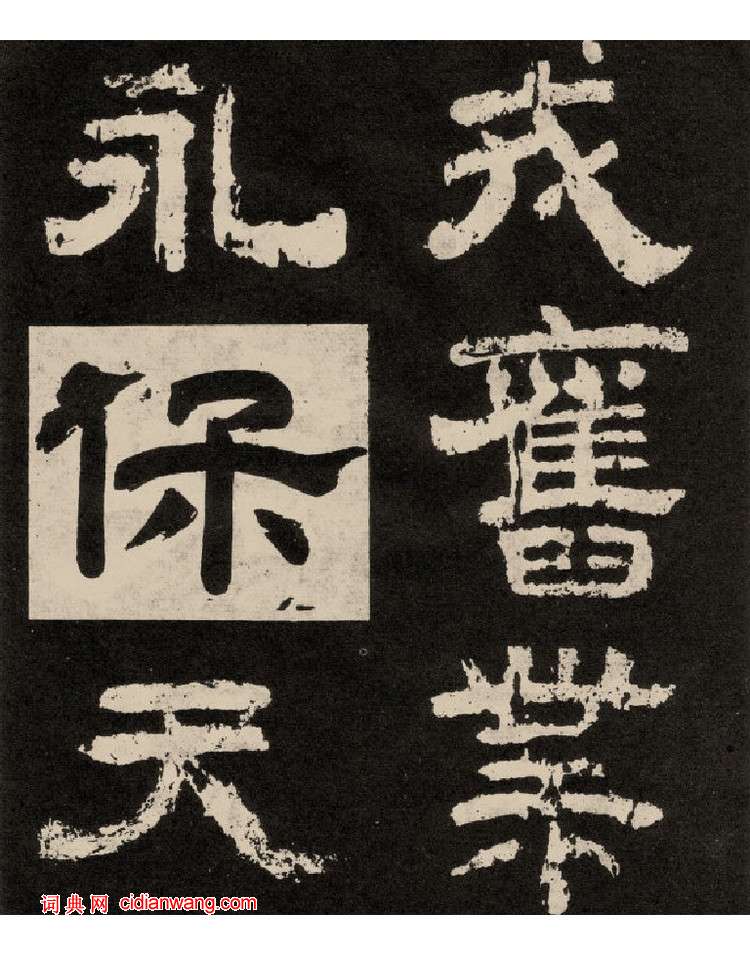 戎舊業
永保天
词典网 cidianwang.com